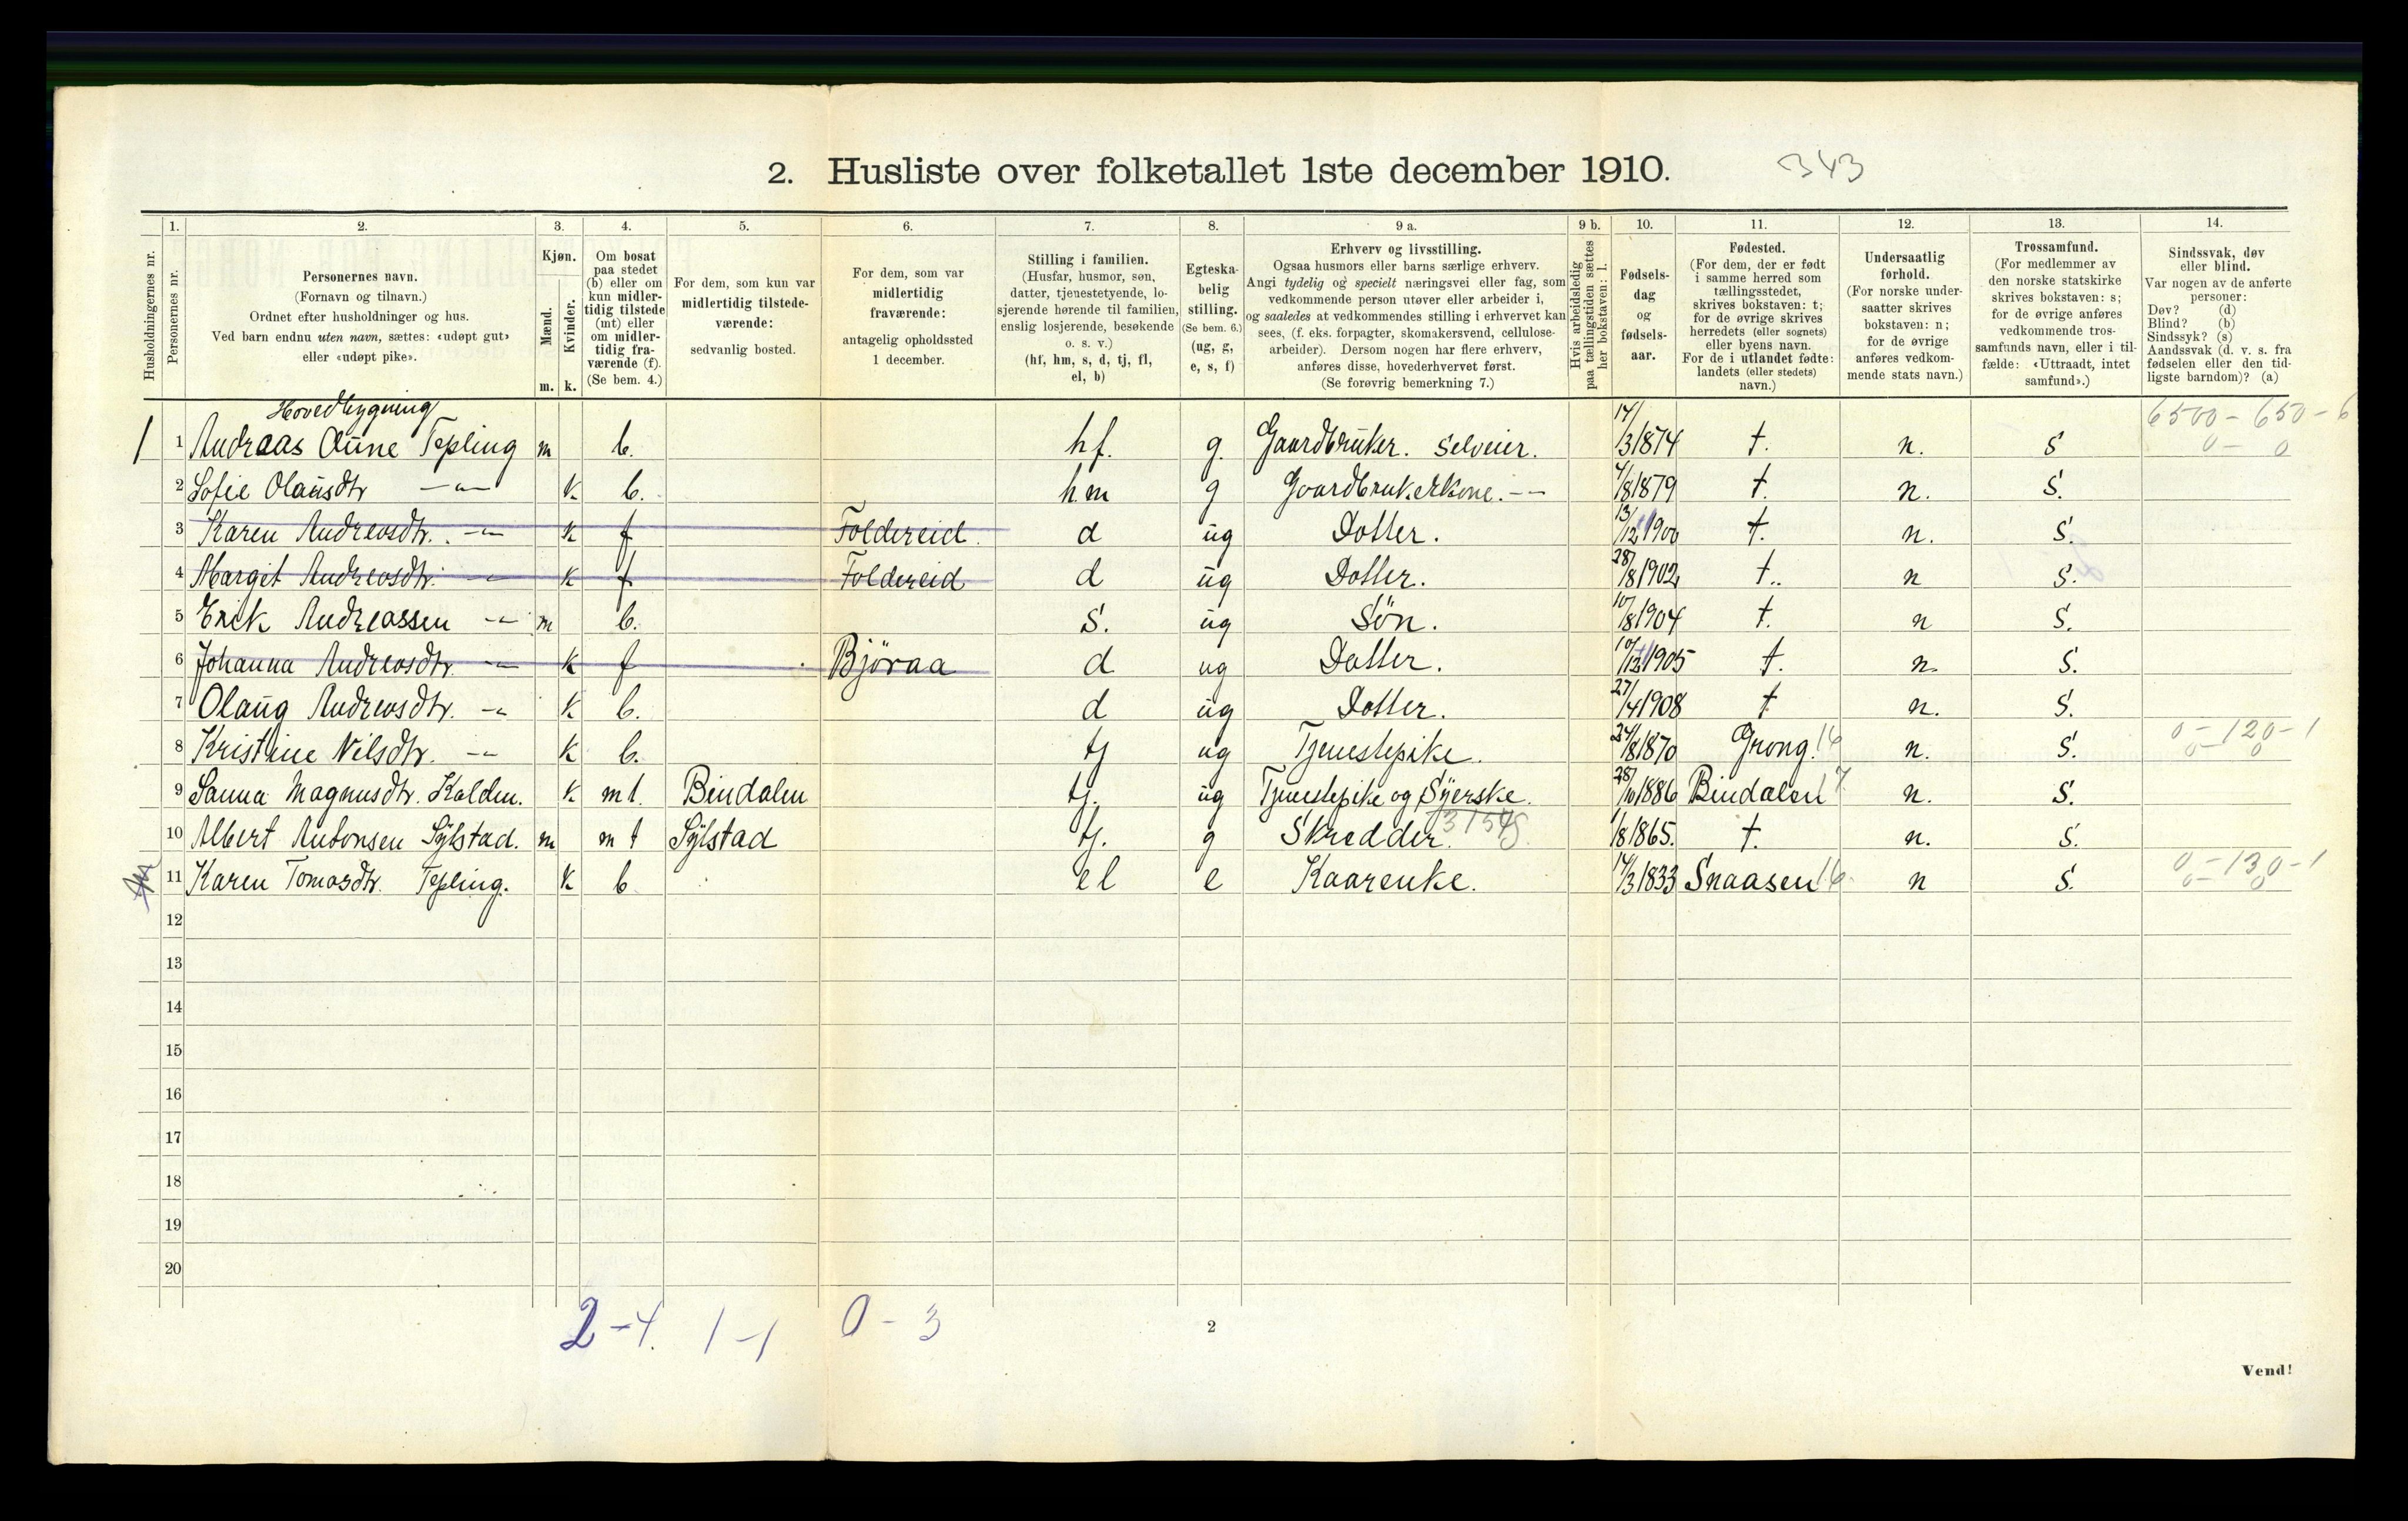 2. Husliste over folketallet 1ste december 1910. 343
1. 2. 3. 4. 5. 6. 7. 8. 9 a. 9 b. 10. 11. 12. 13. 14.
Husholdningernes nr.
Personernes nr.
Personernes navn.
(Fornavn og tilnavn.)
Ordnet efter husholdninger og hus.
Ved barn endnu uten navn, sættes: «udøpt gut»
eller «udøpt pike».
Kjøn.
Mænd.
Kvinder.
m. k.
Om bosat
paa stedet
(b) eller om
kun midler-
tidig tilstede
(mt) eller
om midler-
tidig fra-
værende (f).
(Se bem. 4.)
For dem, som kun var
midlertidig tilstede-
værende:
sedvanlig bosted.
For dem, som var
midlertidig
fraværende:
antagelig opholdssted
1 december.
Stilling i familien.
(Husfar, husmor, søn,
datter, tjenestetyende, lo-
sjerende hørende til familien,
enslig losjerende, besøkende
o. s. v.)
(hf, hm, s, d, tj, fl,
el, b)
Egteska-
belig
stilling.
(Se bem. 6.)
(ug, g,
e, s, f)
Erhverv og livsstilling.
Ogsaa husmors eller barns særlige erhverv.
Angi tydelig og specielt næringsvei eller fag, som
vedkommende person utøver eller arbeider i,
og saaledes at vedkommendes stilling i erhvervet kan
sees, (f. eks. forpagter, skomakersvend, cellulose-
arbeider). Dersom nogen har flere erhverv,
anføres disse, hovederhvervet først.
(Se forøvrig bemerkning 7.)
Hvis arbeidsledig
paa tællingstiden sættes
her bokstaven: l.
Fødsels-
dag
og
fødsels-
aar.
Fødested.
(For dem, der er født
i samme herred som
tællingsstedet,
skrives bokstaven: t;
for de øvrige skrives
herredets (eller sognets)
eller byens navn.
For de i utlandet fødte:
landets (eller stedets)
navn.)
Undersaatlig
forhold.
(For norske under-
saatter skrives
bokstaven: n;
for de øvrige
anføres vedkom-
mende stats navn.)
Trossamfund.
(For medlemmer av
den norske statskirke
skrives bokstav: s;
for de øvrige anføres
vedkommende tros-
samfunds navn, eller i til-
fælde: «Uttraadt, intet
samfund».)
Sindssvak, døv
eller blind.
Var nogen av de anførte
personer:
Døv? (d)
Blind? (b)
Sindssyk? (s)
Aandssvak (d. v. s. fra
fødselen eller den tid-
ligste barndom)? (a)
Hovedbygning 6500 - 650 - 6
1 1 Andreas Aune Tepling m b. hf. g. Gaardbruker. Selveier. 14/3 1874 t. n. S 0 - 0
2 Sofie Olausdtr —"— k b. hm g Gaardbrukerkone. -- 4/8 1879 t. n. S.
3 Karen Andreasdtr. —"— k f Foldereid. d ug Datter. 13/12 1900 t. n. S.
4 Margit Andreasdtr. —"— k f Foldereid d ug Datter. 28/8 1902 t. n S.
5 Erik Andreassen —"— m b. s. ug Søn. 10/8 1904 t. n S.
6 Johanna Andreasdtr. —"— k f Bjøraa d ug Datter. 10/12 1905 t. n. S.
7 Olaug Andreasdtr. —"— k b. d ug Datter. 27/4 1908 t n. S.
8 Kristine Nilsdtr. —"— k b. tj ug Tjenestepike. 24/8 1870 Grong. 16 n. S. 0 - 120 - 1
0 - 0
9 Sanna Magnusdtr. Kalden. k mt. Bindalen tj. ug Tjenestepike og Syerske. 28/10 1886 Bindalen 17 n. S.
10 Albert Antonsen Sylstad. m mt Sylstad tj. g Skredder. 1/8 1865. t. n. S.
11 Karen Tomasdtr. Tepling. k b el e Kaarenke. 14/3 1833 Snaasen 16. n S. 0 - 130 - 1
0 - 0
12
13
14
15
16
17
18
19
20
2 - 4. 1 - 1 0 - 3
2
Vend!